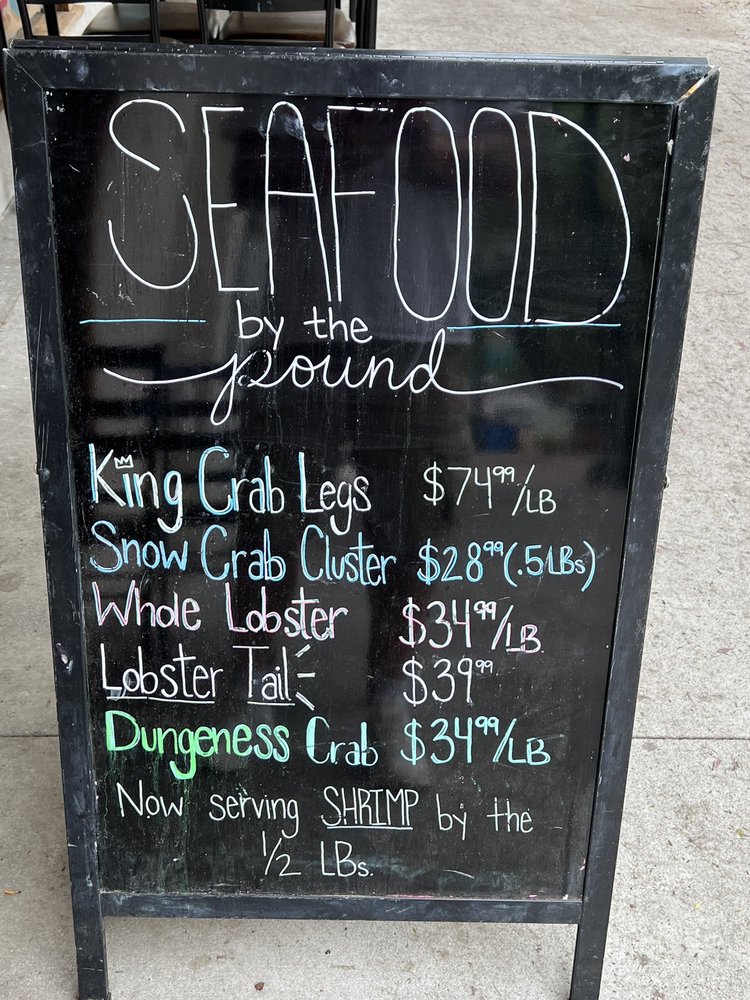 SEAFOOD
by the
pound
King Crab Legs $74.99/LB
Snow Crab Cluster $28.99 (.5LBs)
Whole Lobster $34.99/LB
Lobster Tail $39.99
Dungeness Crab $34.99/LB
Now serving SHRIMP by the
1/2 LBs.